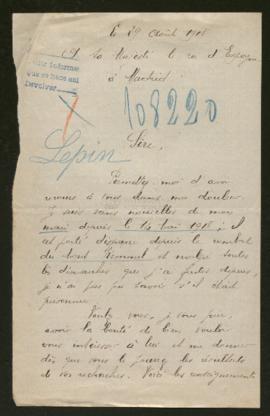 Le 29 Août 1918
A Sa Majesté le roi d'Espagne
à Madrid
que se hace así
Devolver
108220
Lepin
Sire,
Permettez-moi d'avoir
recours à vous dans ma douleur.
Je suis sans nouvelles de mon
mari depuis le 14 mai 1918; il
est porté disparu depuis le combat
du mont Kemmel et malgré toutes
les démarches que j'ai faites depuis,
je n'ai pas pu savoir s'il était
prisonnier.
Veuillez, je vous prie,
avoir la bonté de bien vouloir
vous intéresser à lui et me donner
dès que vous le pourrez les résultats
de vos recherches. Voici les renseignements